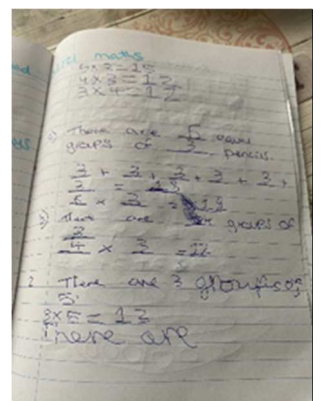 maths
5 x 2 = 15
4 x 3 = 12
3 x 4 = 12
There are 5 equal
groups of 3 pencils.
3 + 3 + 3 + 3 + 3
3 = 15
5 x 3 =
There are groups of
3
4 x 3 = 12
2 There are 3 groups of
5
3 x 5 = 13
There are